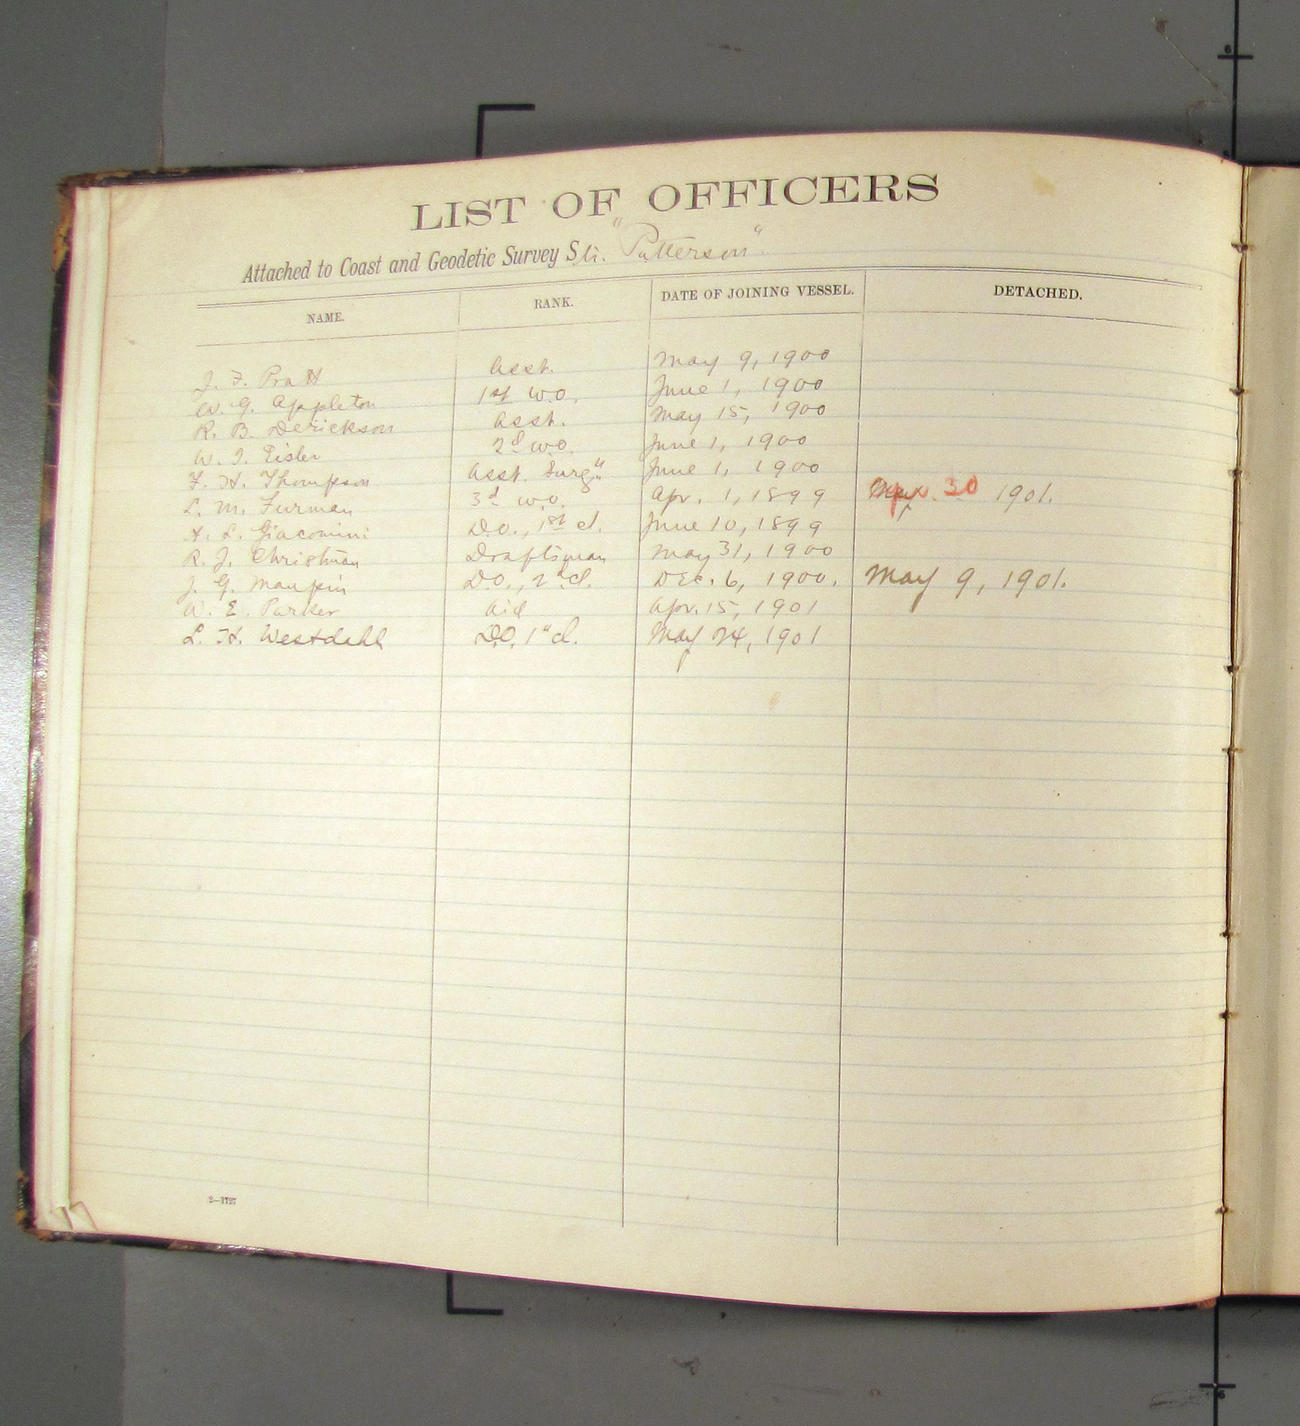 LIST OF OFFICERS
Attached to Coast and Geodetic Survey Str. "Patterson"
NAME. RANK. DATE OF JOINING VESSEL. DETACHED.
J. F. Pratt Asst. May 9, 1900
W. G. Appleton 1st W.O. June 1, 1900
R. B. Derickson Asst. May 15, 1900
W. I. Eisler 2d W.O. June 1, 1900
F. H. Thompson Asst. Surgn June 1, 1900
L. M. Furman 3d W.O. Apr. 1, 1899 Apr. 30 1901.
A. L. Giacomini D.O., 1st cl. June 10, 1899
R. J. Christman Draftsman May 31, 1900
J. G. Maupin D.O., 2d cl. Dec. 6, 1900. May 9, 1901.
W. E. Parker Aid Apr. 15, 1901
L. H. Westdahl D.O. 1st cl. May 24, 1901
2—1727